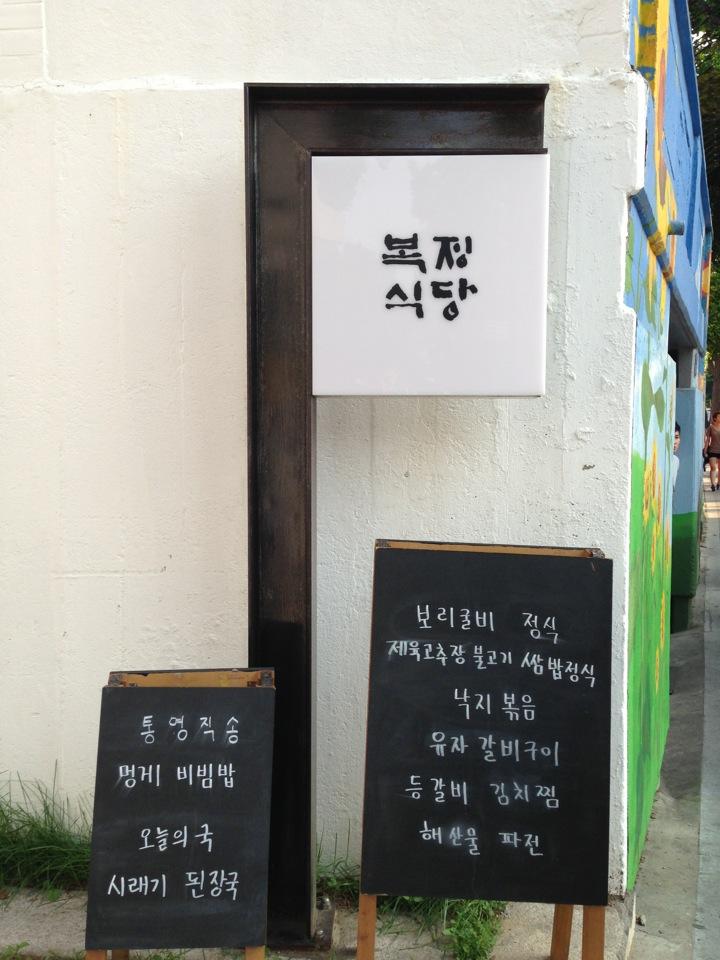 복정
식당
보리굴비 정식
제육고추장 불고기 쌈밥정식
낙지 볶음
유자 갈비구이
등갈비 김치찜
해산물 파전
통영직송
멍게 비빔밥
오늘의 국
시래기 된장국